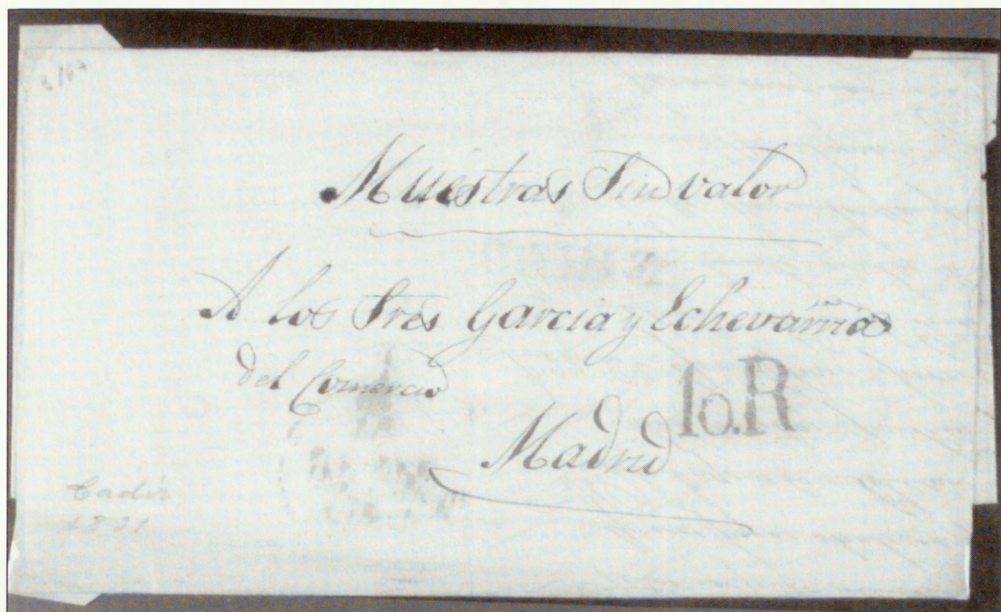 Muestras Sin valor
A los Sres Garcia y Echevarria
del Comercio
1o.R
Madrid
Cadiz